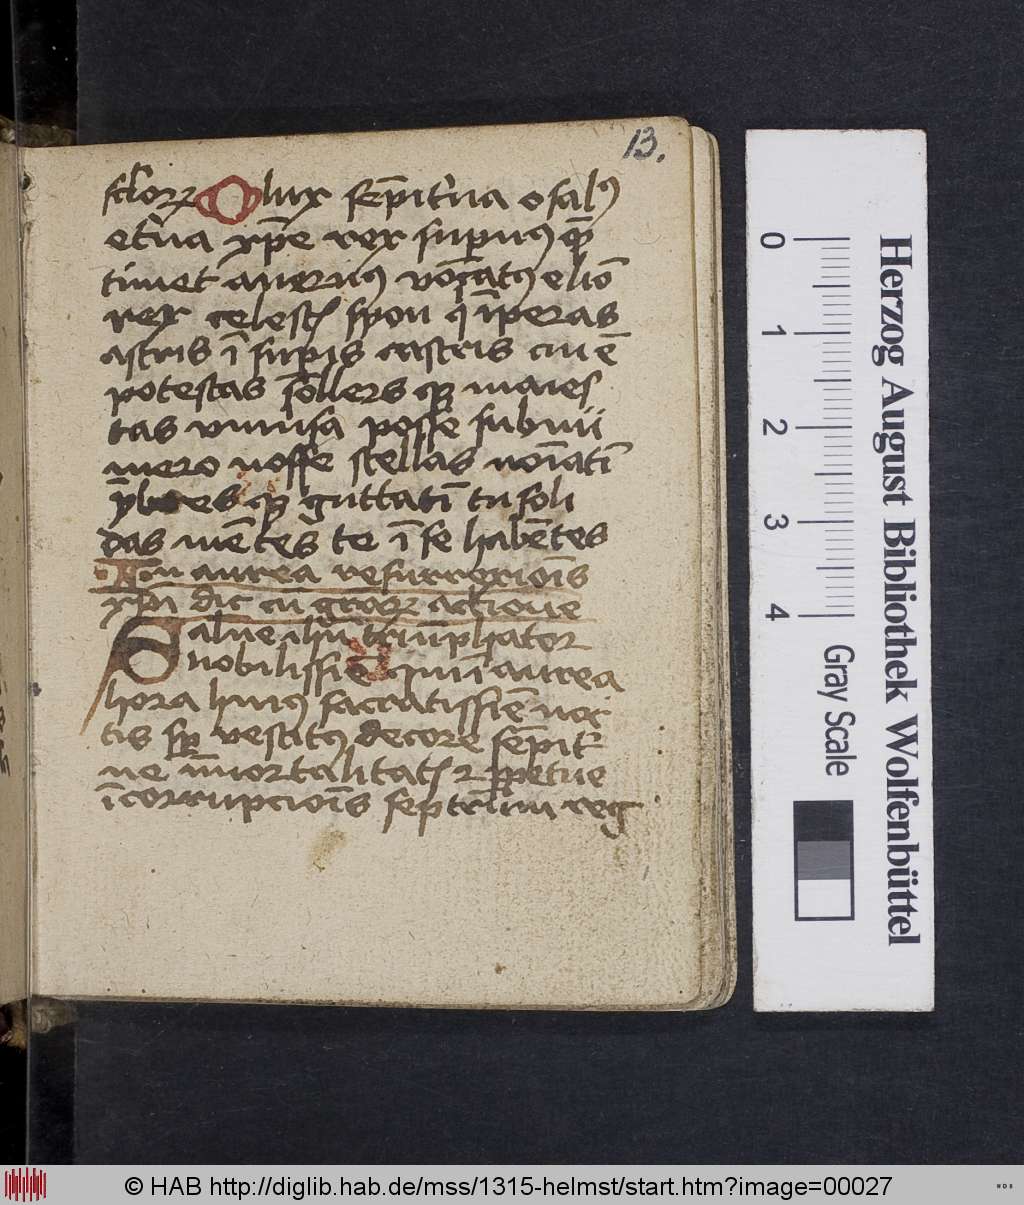 13.
sclorum O lux sempiterna o salus
eterna xpe rex supernus quem
timet auernus vocatus elion
rex celestis syon qui imperas
astris in supernis castris cui est
potestas sollers que maies
tas vniuersa posse sub nu
mero nosse stellas nominatim
que guttatim tu soli
das mentes te in se habentes
In aurea resurrexionis
xpi dic cum graciarum actione
Salue ihu triumphator
nobilissime qui in aurea
hora huius sacratissime noc
tis super vestitus decore sempiter
ne immortalitatis et perpetue
incorrupcionis sceptrum reg
Herzog August Bibliothek Wolfenbüttel
0 1 2 3 4
Gray Scale
© HAB http://diglib.hab.de/mss/1315-helmst/start.htm?image=00027